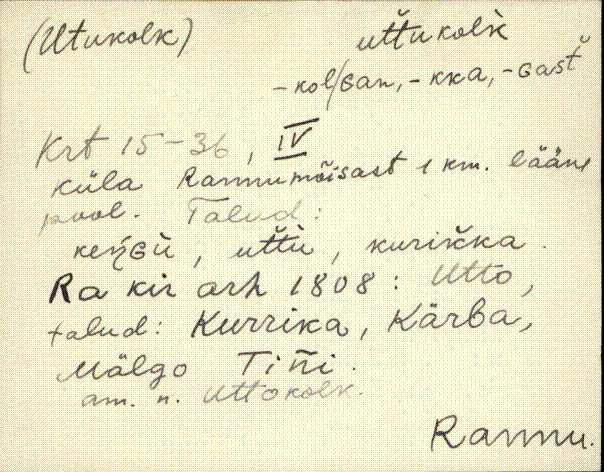 (Utukolk) uťtukolk
-kol/Gan, -kka, -Gast
Krt 15-36, IV
küla Rannumõisast 1 km. lääne
pool. Talud:
keŋGü, uťtü, kurikka.
Ra kir arh 1808: Utto,
talud: Kurrika, Kärba,
Mälgo Tiñi.
am. n. Uttokolk.
Rannu.